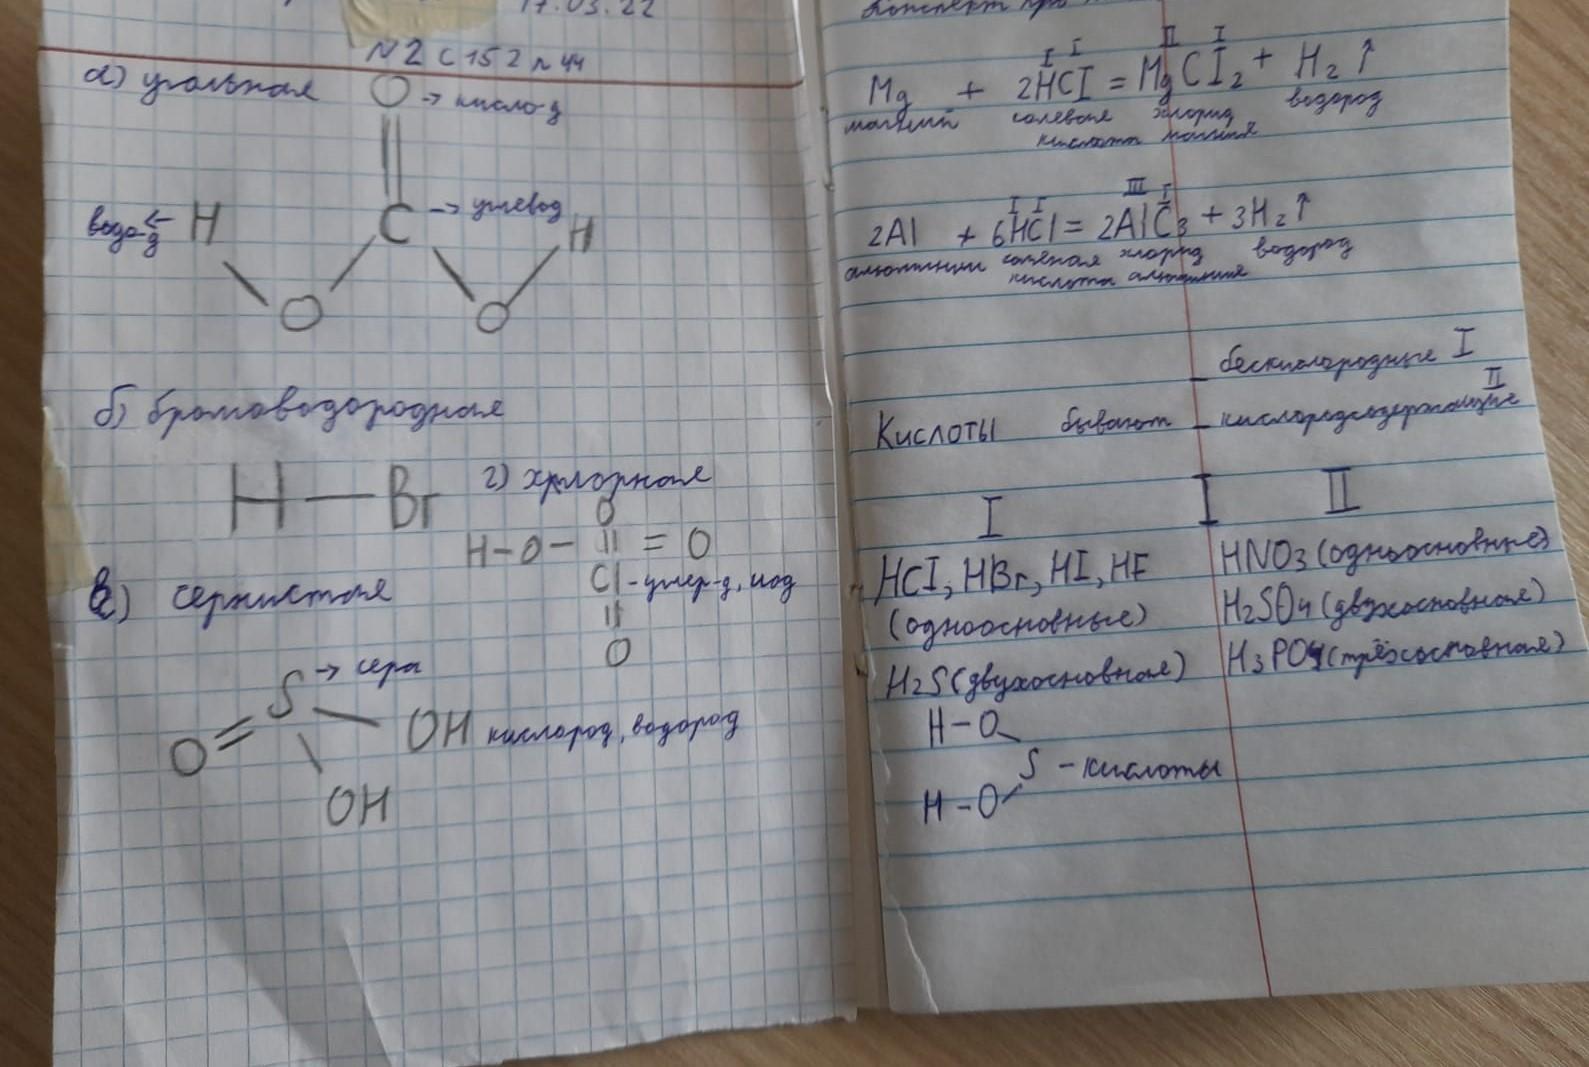 17.03.22
N2 с 152 п 44
а) угольная O → кисло-д
водо-д ← H C → углевод H
O O
б) бромоводородная
H — Br
г) хрлорная
O
H-O- = O
Cl - углер-д, иод
O
в) сернистая
S → сера
O = OH кислород, водород
OH
Конспект про
I I II I
Mg + 2HCl = MgCl2 + H2 ↑
магний солевая хлорид водород
кислота магния
I I III I
2Al + 6HCl = 2AlC3 + 3H2 ↑
алюминий соляная хлорид водород
кислота алюминия
- бескислородные I
II
Кислоты бывают - кислородсодержащие
I I II
HCl, HBr, HI, HF
(одноосновные)
H2S (двухосновная)
HNO3 (одноосновные)
H2SO4 (двухосновная)
H3PO4 (трёхосновная)
H-O
S - кислоты
H-O